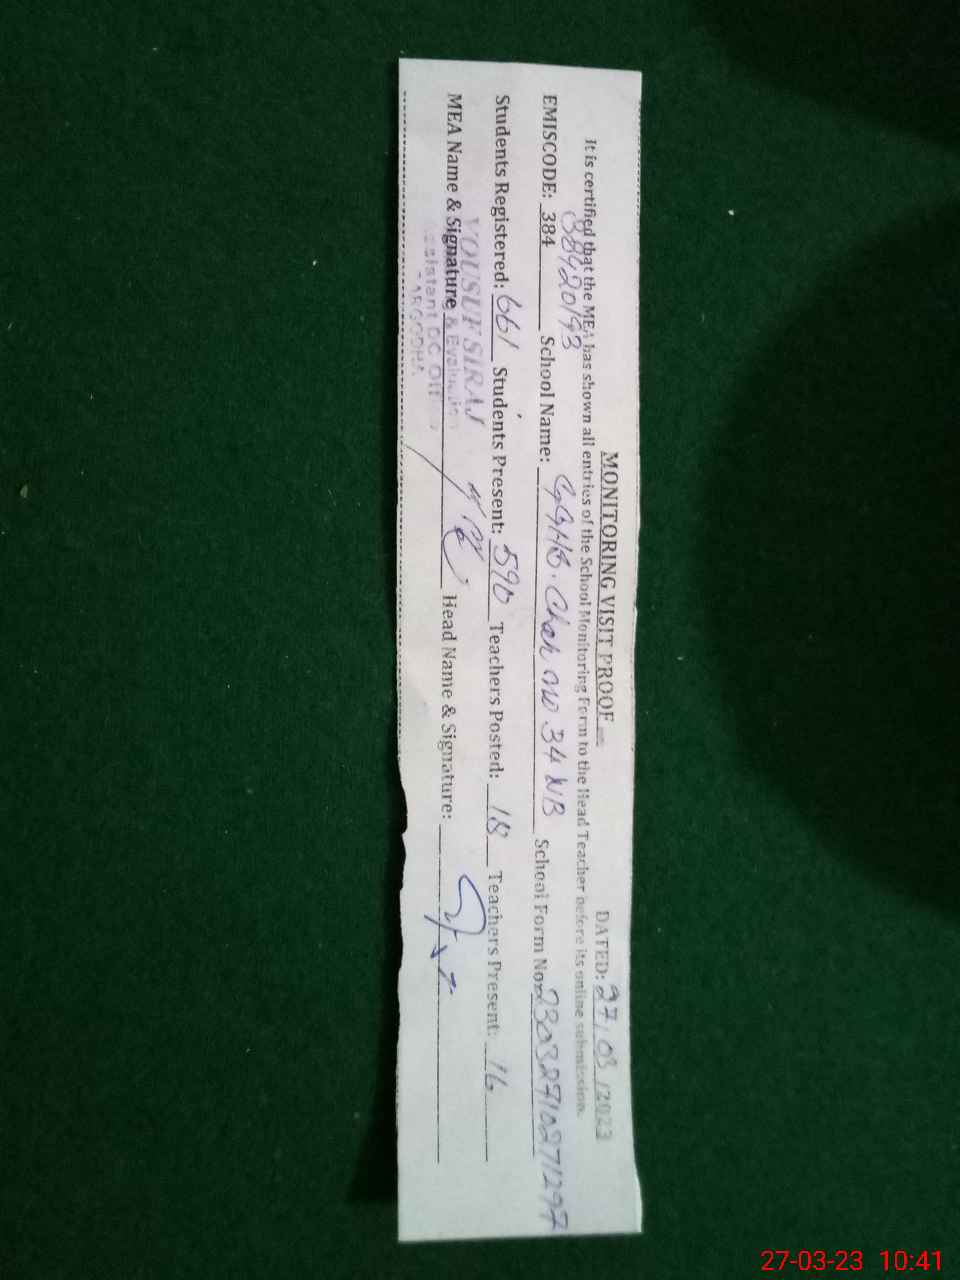 MONITORING VISIT PROOF
DATED: 27/03/2023
It is certified that the MEA has shown all entries of the School Monitoring Form to the Head Teacher before its online submission.
38420193
EMISCODE: 384 School Name: GGHS. Chak no 34 NB School Form No: 23032710271297
Students Registered: 661 Students Present: 590 Teachers Posted: 18 Teachers Present: 16
YOUSUF SIRAJ
MEA Name & Signature Head Name & Signature:
& Evaluation
Assistant DC Off
SARGODHA
27-03-23 10:41